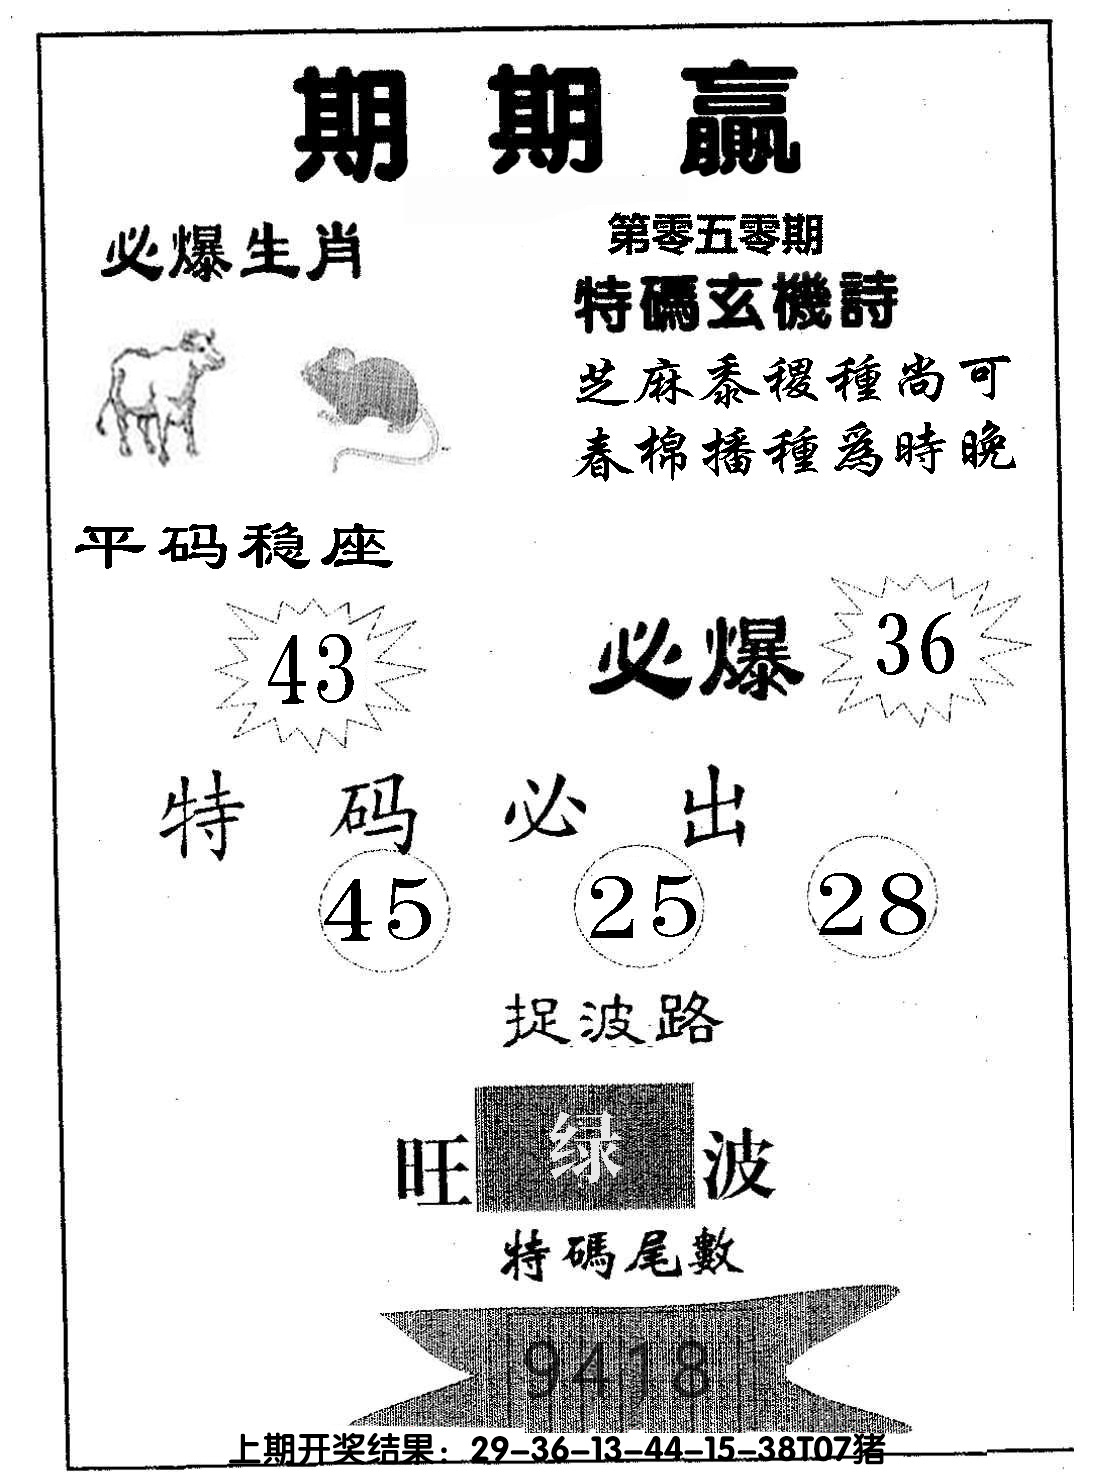 期期赢
必爆生肖
第零五零期
特碼玄機詩
芝麻黍稷種尚可
春棉播種爲時晚
平码稳座
43
必爆 36
特码必出
45 25 28
捉波路
旺 绿 波
特碼尾數
9418
上期开奖结果：29-36-13-44-15-38T07猪